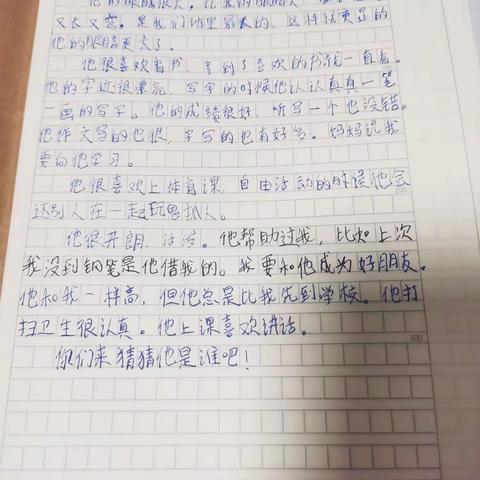 他的眼睛很大。比我的眼睛大
又大又宽。是我们班里最大的，这样就更显的
他的眼睛更大了。
他很喜欢看书，拿到了喜欢的书就一直看。
他的字迹很漂亮，写字的时候他认认真真一笔
一画的写字。他的成绩很好，听写一个也没错。
他作文写的也很，字写的也有好多。妈妈说我
要向他学习。
他很喜欢上体育课，自由活动的时候他会
达别人在一起玩鬼抓人。
他很开朗，活泼。他帮助过我，比如上次
我没到钢笔是他借我的。我要和他成为好朋友。
他和我一样高，但他总是比我先到学校。他打
扫卫生很认真。他上课喜欢讲话。
你们来猜猜他是谁吧！
300